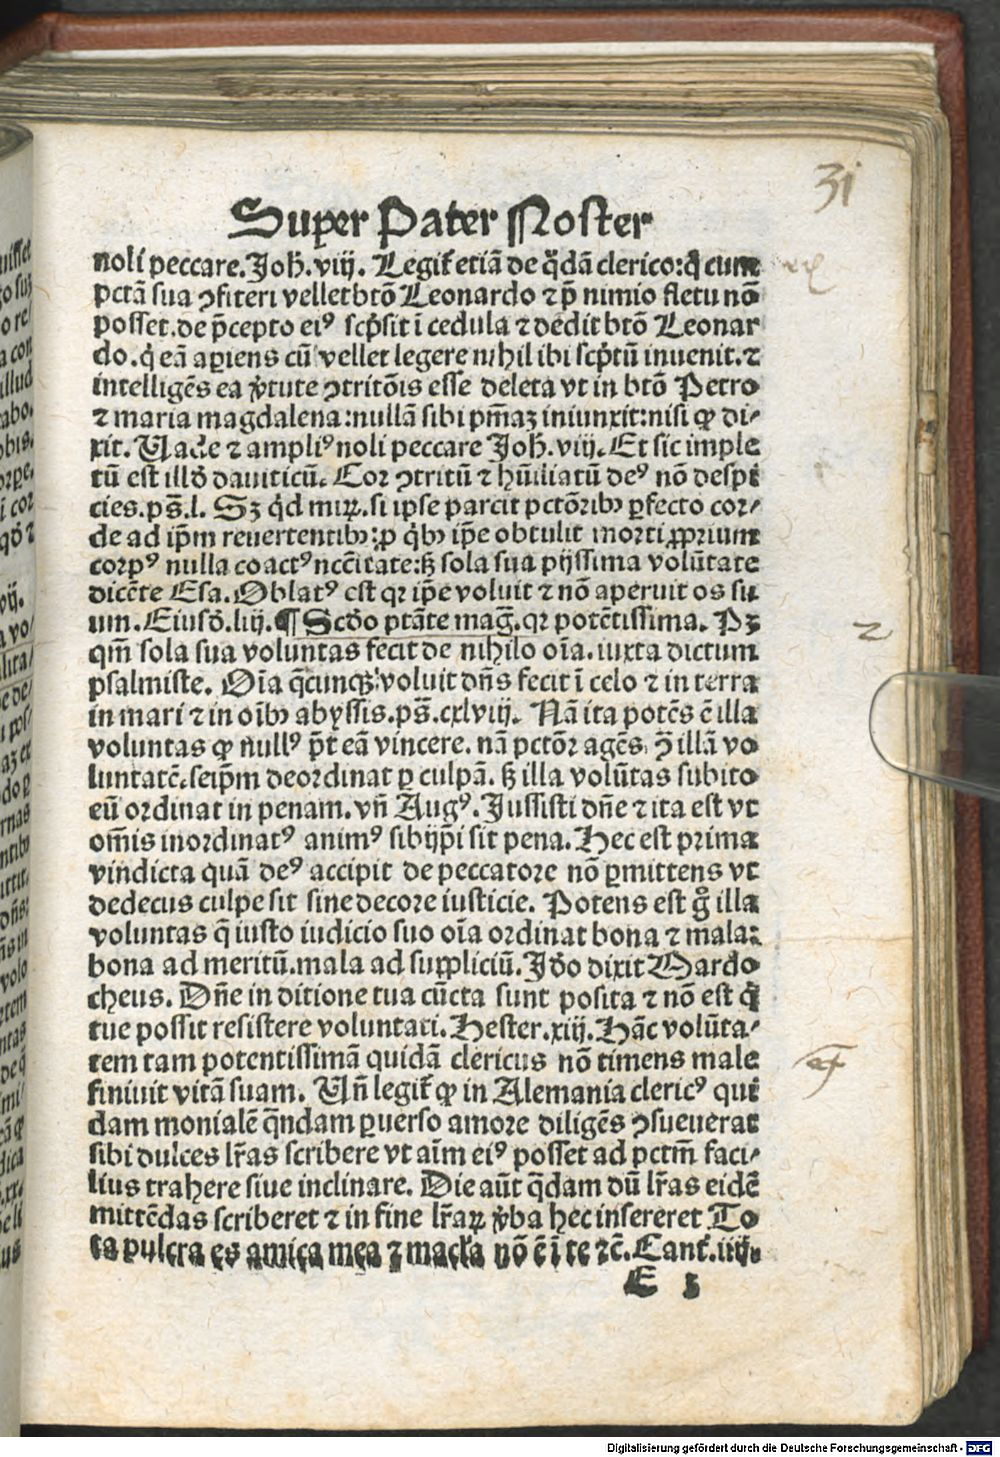 31
Super Pater Noster
noli peccare. Joħ. viij. Legit̃ etiã de q̃dã clerico: q̇ cum
pctã sua ꝯfiteri vellet btõ Leonardo ⁊ p̃ nimio fletu nõ
posset. de p̃cepto eiꝰ scp̃sit ĩ cedula ⁊ dedit btõ Leonar
do. q̇ eã aꝑiens cũ vellet legere nihil ibi scp̃tũ inuenit. ⁊
intelligẽs ea v̓tute ꝯtritõis esse deleta vt in btõ Petro
⁊ maria magdalena: nullã sibi pm̃aꝫ iniunxit: nisi ꝙ di⸗
xit. Uade ⁊ ampliꝰ noli peccare Joħ. viij. Et sic imple
tũ est illð dauiticũ. Cor ꝯtritũ ⁊ hũiliatũ deꝰ nõ despi
cies. ps̃. l. Sꝫ qd̓ miꝝ. si ipse parcit pctõribꝰ ꝑfecto cor⸗
de ad ip̃m reuertentibꝰ: ꝓ q̇bꝰ ip̃e obtulit morti ꝓprium
corpꝰ nulla coactꝰ nccĩtate: sꝫ sola sua pijssima volũtate
dicẽte Esa. Oblatꝰ est qꝛ ip̃e voluit ⁊ nõ aperuit os su
um. Eiusð. liij. ¶ Scðo ptãte mag̃. qꝛ potẽtissima. Pꝫ
qm̃ sola sua voluntas fecit de nihilo oĩa. iuxta dictum
psalmiste. Oĩa q̃cunqꝫ voluit dñs fecit ĩ celo ⁊ in terra
in mari ⁊ in oĩbꝰ abyssis. ps̃. cxlviij. Nã ita potẽs ẽ illa
voluntas ꝙ nullꝰ p̃t eã vincere. nã pctõr agẽs ꝯ̃ illã vo
luntatẽ. seip̃m deordinat ꝑ culpã. sꝫ illa volũtas subito
eũ ordinat in penam. vñ Augꝰ. Jussisti dñe ⁊ ita est vt
om̃is inordinatꝰ animꝰ sibijp̃i sit pena. Hec est prima
vindicta quã deꝰ accipit de peccatore nõ ꝑmittens vt
dedecus culpe sit sine decore iusticie. Potens est g̊ illa
voluntas q̃ iusto iudicio suo oĩa ordinat bona ⁊ mala:
bona ad meritũ. mala ad suppliciũ. Jðo dixit Mardo
cheus. Dñe in ditione tua cũcta sunt posita ⁊ nõ est q̇
tue possit resistere voluntati. Hester. xiij. Hãc volũta⸗
tem tam potentissimã quidã clericus nõ timens male
finiuit vitã suam. Uñ legit̃ ꝙ in Alemania clericꝰ qui
dam monialẽ q̃ndam ꝑuerso amore diligẽs ꝯsueuerat
sibi dulces lr̃as scribere vt aĩm eiꝰ posset ad pctm̃ faci⸗
lius trahere siue inclinare. Die aũt q̃dam dũ lr̃as eidẽ
mittẽdas scriberet ⁊ in fine lr̃aꝝ v̓ba hec insereret To
ta pulcra es amica mea ⁊ macl̃a nõ ẽ ĩ te ⁊c̃. Cant̃. iiij.
E 3
2
Digitalisierung gefördert durch die Deutsche Forschungsgemeinschaft - DFG